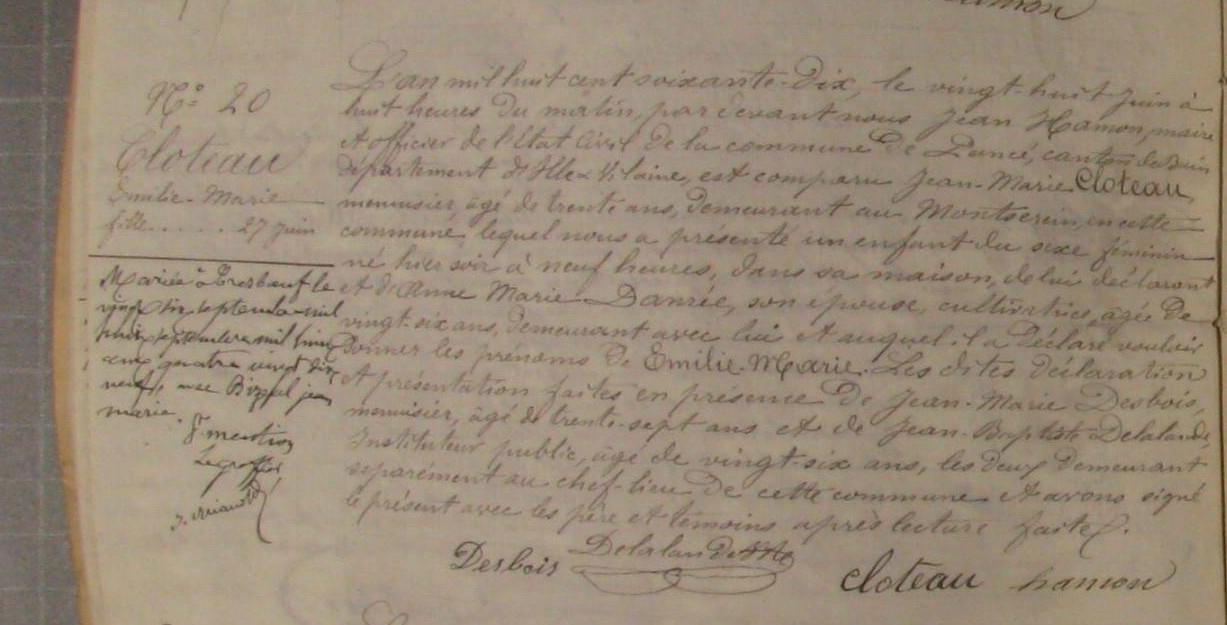 hamon
N° 20
Cloteau
Emilie-Marie
fille..... 27 juin
Mariée à Tresbœuf le
vingt six septembre mil
huit
cent quatre vingt dix
neuf, avec jean
marie.
Pr mention
Le greffier,
L'an mil huit cent soixante-dix, le vingt-huit juin à
huit heures du matin, par devant nous Jean Hamon, maire
et officier de l'Etat Civil de la commune de Pancé, canton de
département d'Ille & Vilaine, est comparu Jean-Marie Cloteau,
menuisier, âgé de trente ans, demeurant au Montserein, en cette
commune, lequel nous a présenté un enfant du sexe féminin
né hier soir à neuf heures, dans sa maison, de lui déclarant
et de Anne Marie Danrée, son épouse, cultivatrice, âgée de
vingt-six ans, demeurant avec lui et auquel il a déclaré vouloir
donner les prénoms de Emilie-Marie. Les dites déclaration
et présentation faites en présence de Jean-Marie Desbois,
menuisier, âgé de trente-sept ans et de Jean-Baptiste Delalande,
Instituteur public, âgé de vingt-six ans, les deux demeurant
séparément au chef-lieu de cette commune et avons signé
le présent avec les père et témoins après lecture faite.
Desbois Delalande Cloteau hamon